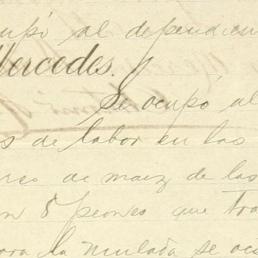 cupó al dependien
Mercedes.
Se ocupó al
s de labor en las
res de maiz de las
n 5 peones que tra
ara la mulada se oc